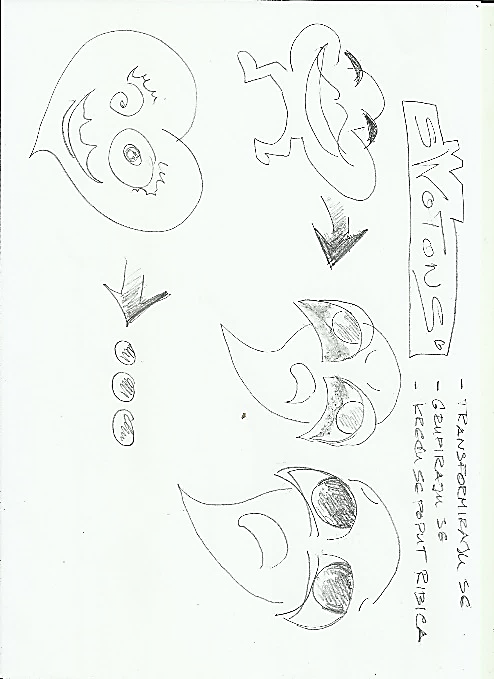 "SNOTONS"
- TRANSFORMIRAJU SE
- GRUPIRAJU SE
- KREĆU SE POPUT RIBICA